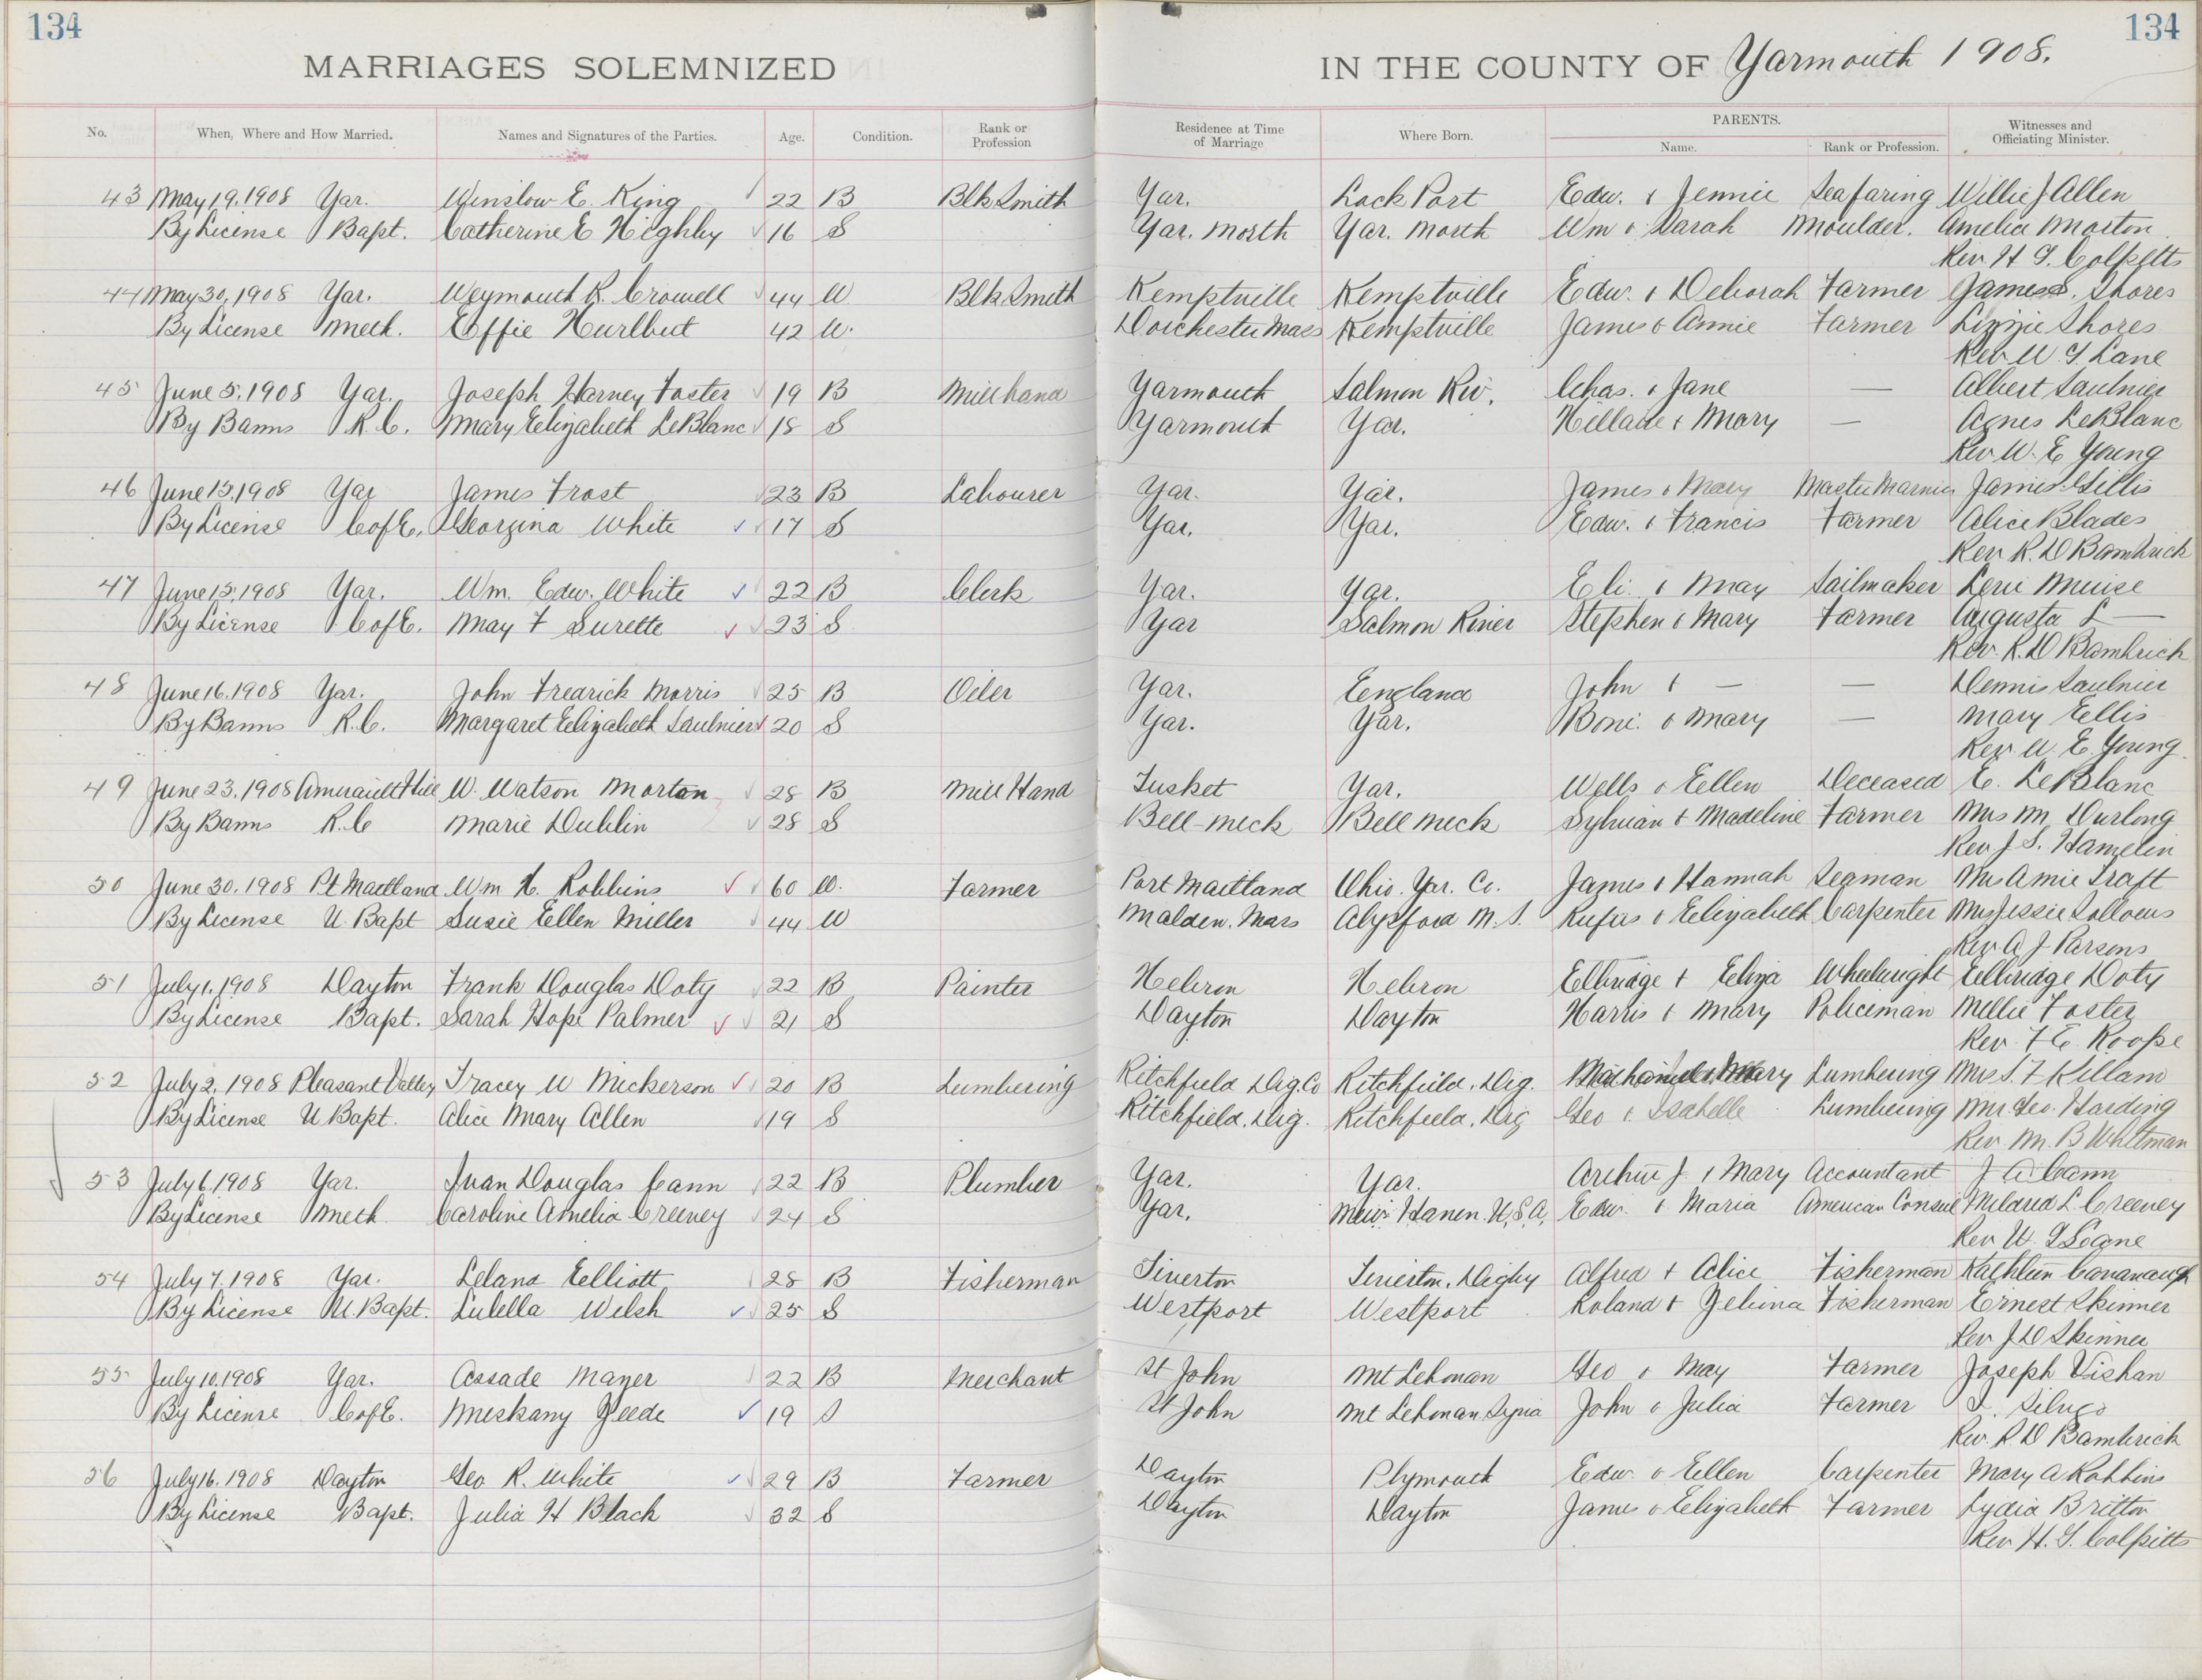 134 134
MARRIAGES SOLEMNIZED IN THE COUNTY OF Yarmouth 1908.
No. When, Where and How Married. Names and Signatures of the Parties. Age. Condition. Rank or Profession Residence at Time of Marriage Where Born. PARENTS. Name. Rank or Profession. Witnesses and Officiating Minister.
43 May 19, 1908 Yar. Winslow E. King 22 B BlkSmith Yar. Lock Port Edw. & Jennie Seafaring Willie J Allen
By License Bapt. Catherine E Highby 16 S Yar. North Yar. North Wm & Sarah Moulder. Amelia Morton
Rev H G. Colpitts
44 May 30, 1908 Yar. Weymouth R. Crowell 44 W Blk Smith Kemptville Kemptville Edw. & Deborah Farmer James S. Shores
By License Meth. Effie Hurlbut 42 W. Dorchester Mass Kemptville James & Annie Farmer Lizzie Shores
Rev W G Lane
45 June 5, 1908 Yar. Joseph Harney Foster 19 B Mill hand Yarmouth Salmon Riv. Chas. & Jane — Albert Saulnier
By Banns R.C. Mary Elizabeth LeBlanc 18 S Yarmouth Yar. Hillare & Mary — Agnes LeBlanc
Rev W. E Young
46 June 15, 1908 Yar James Frost 23 B Labourer Yar. Yar. James & Mary Master Marnier James Gillis
By License C of E. Georgina White 17 S Yar. Yar. Edw. & Francis Farmer Alice Blades
Rev R. D Bambrick
47 June 15, 1908 Yar. Wm. Edw. White 22 B Clerk Yar. Yar. Eli & May Sailmaker Levi Muise
By License C of E. May F Surette 23 S Yar Salmon River Stephen & Mary Farmer Augusta L —
Rev. R. D Bambrick
48 June 16, 1908 Yar. John Fredrick Morris 25 B Oiler Yar. England John & — — Dennis Saulnier
By Banns R.C. Margaret Elizabeth Saulnier 20 S Yar. Yar. Boni. & Mary — Mary Ellis
Rev. W. E. Young
49 June 23, 1908 Amirault Hill W. Watson Morton 28 B Mill Hand Tusket Yar. Wells & Ellen Deceased E. LeBlanc
By Banns R.C Marie Dublin 28 S Bell-neck Bell neck Sylvian & Madeline Farmer Mrs M. Durlong
Rev J S. Hamelin
50 June 30, 1908 Pt Maitland Wm H. Robbins 60 W. Farmer Port Maitland Ohio. Yar. Co. James & Hannah Seaman Mrs Amie Traft
By License U. Bapt Susie Ellen Miller 44 W Malden. Mass Alysford N. S. Rufus & Elizabeth Carpenter Mrs Jessie Sollows
Rev. A J Parsons
51 July 1, 1908 Dayton Frank Douglas Doty 22 B Painter Hebron Hebron Elbridge & Eliza Wheelwright Elbridge Doty
By License Bapt. Sarah Hope Palmer 21 S Dayton Dayton Harris & Mary Policeman Millie Foster
Rev. F E. Roope
52 July 2, 1908 Pleasant Valley Tracey W Nickerson 20 B Lumbering Ritchfield Dig. Co Ritchfield. Dig. & Mary Lumbering Mrs S. F Killam
By License U Bapt. Alice Mary Allen 19 S Ritchfield. Dig. Ritchfield. Dig Geo & Isabelle Lumbering Mr Geo. Harding
Rev M. B Whitman
53 July 6, 1908 Yar. Ivan Douglas Cann 22 B Plumber Yar. Yar. Arthur J. & Mary Accountant J A Cann
By License Meth. Caroline Amelia Creeney 24 S Yar. New Haven. U.S.A. Edw. & Maria American Consul Mildred L. Creeney
Rev W. G Lane
54 July 7, 1908 Yar. Leland Elliott 28 B Fisherman Tiverton Tiverton. Digby Alfred & Alice Fisherman Kathleen Cavanaugh
By License U. Bapt. Lulella Welsh 25 S Westport Westport Roland & Zebina Fisherman Ernest Skinner
Rev J D Skinner
55 July 10, 1908 Yar. Assade Mayer 22 B Merchant St John Mt Lebonan Geo & May Farmer Joseph Vishan
By License C of E. Meskany Zeede 19 S St John Mt Lebonan Syria John & Julia Farmer
Rev. R D Bambrick
56 July 16, 1908 Dayton Geo R. White 29 B Farmer Dayton Plymouth Edw. & Ellen Carpenter Mary A Robbins
By License Bapt. Julia H Black 32 S Dayton Dayton James & Elizabeth Farmer Lydia Britton
Rev H. G. Colpitts